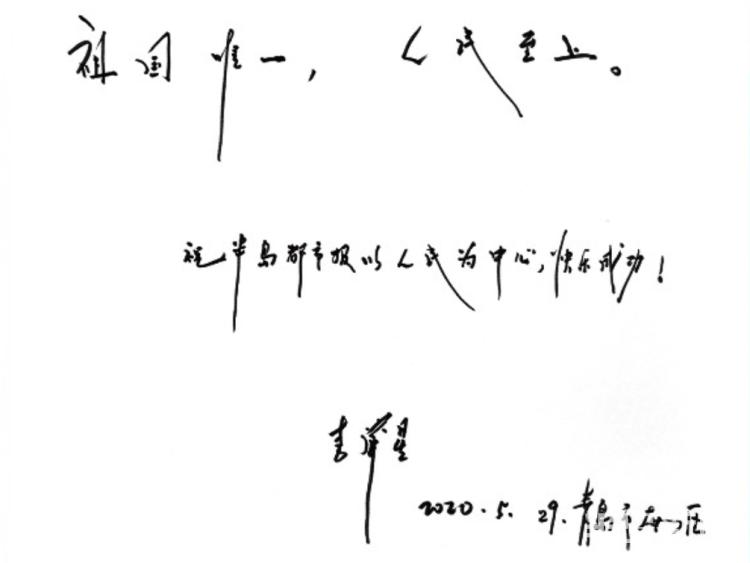 祖国唯一，人民至上。
祝半岛都市报以人民为中心，快乐成功！
李肇星
2020.5.29.青岛市